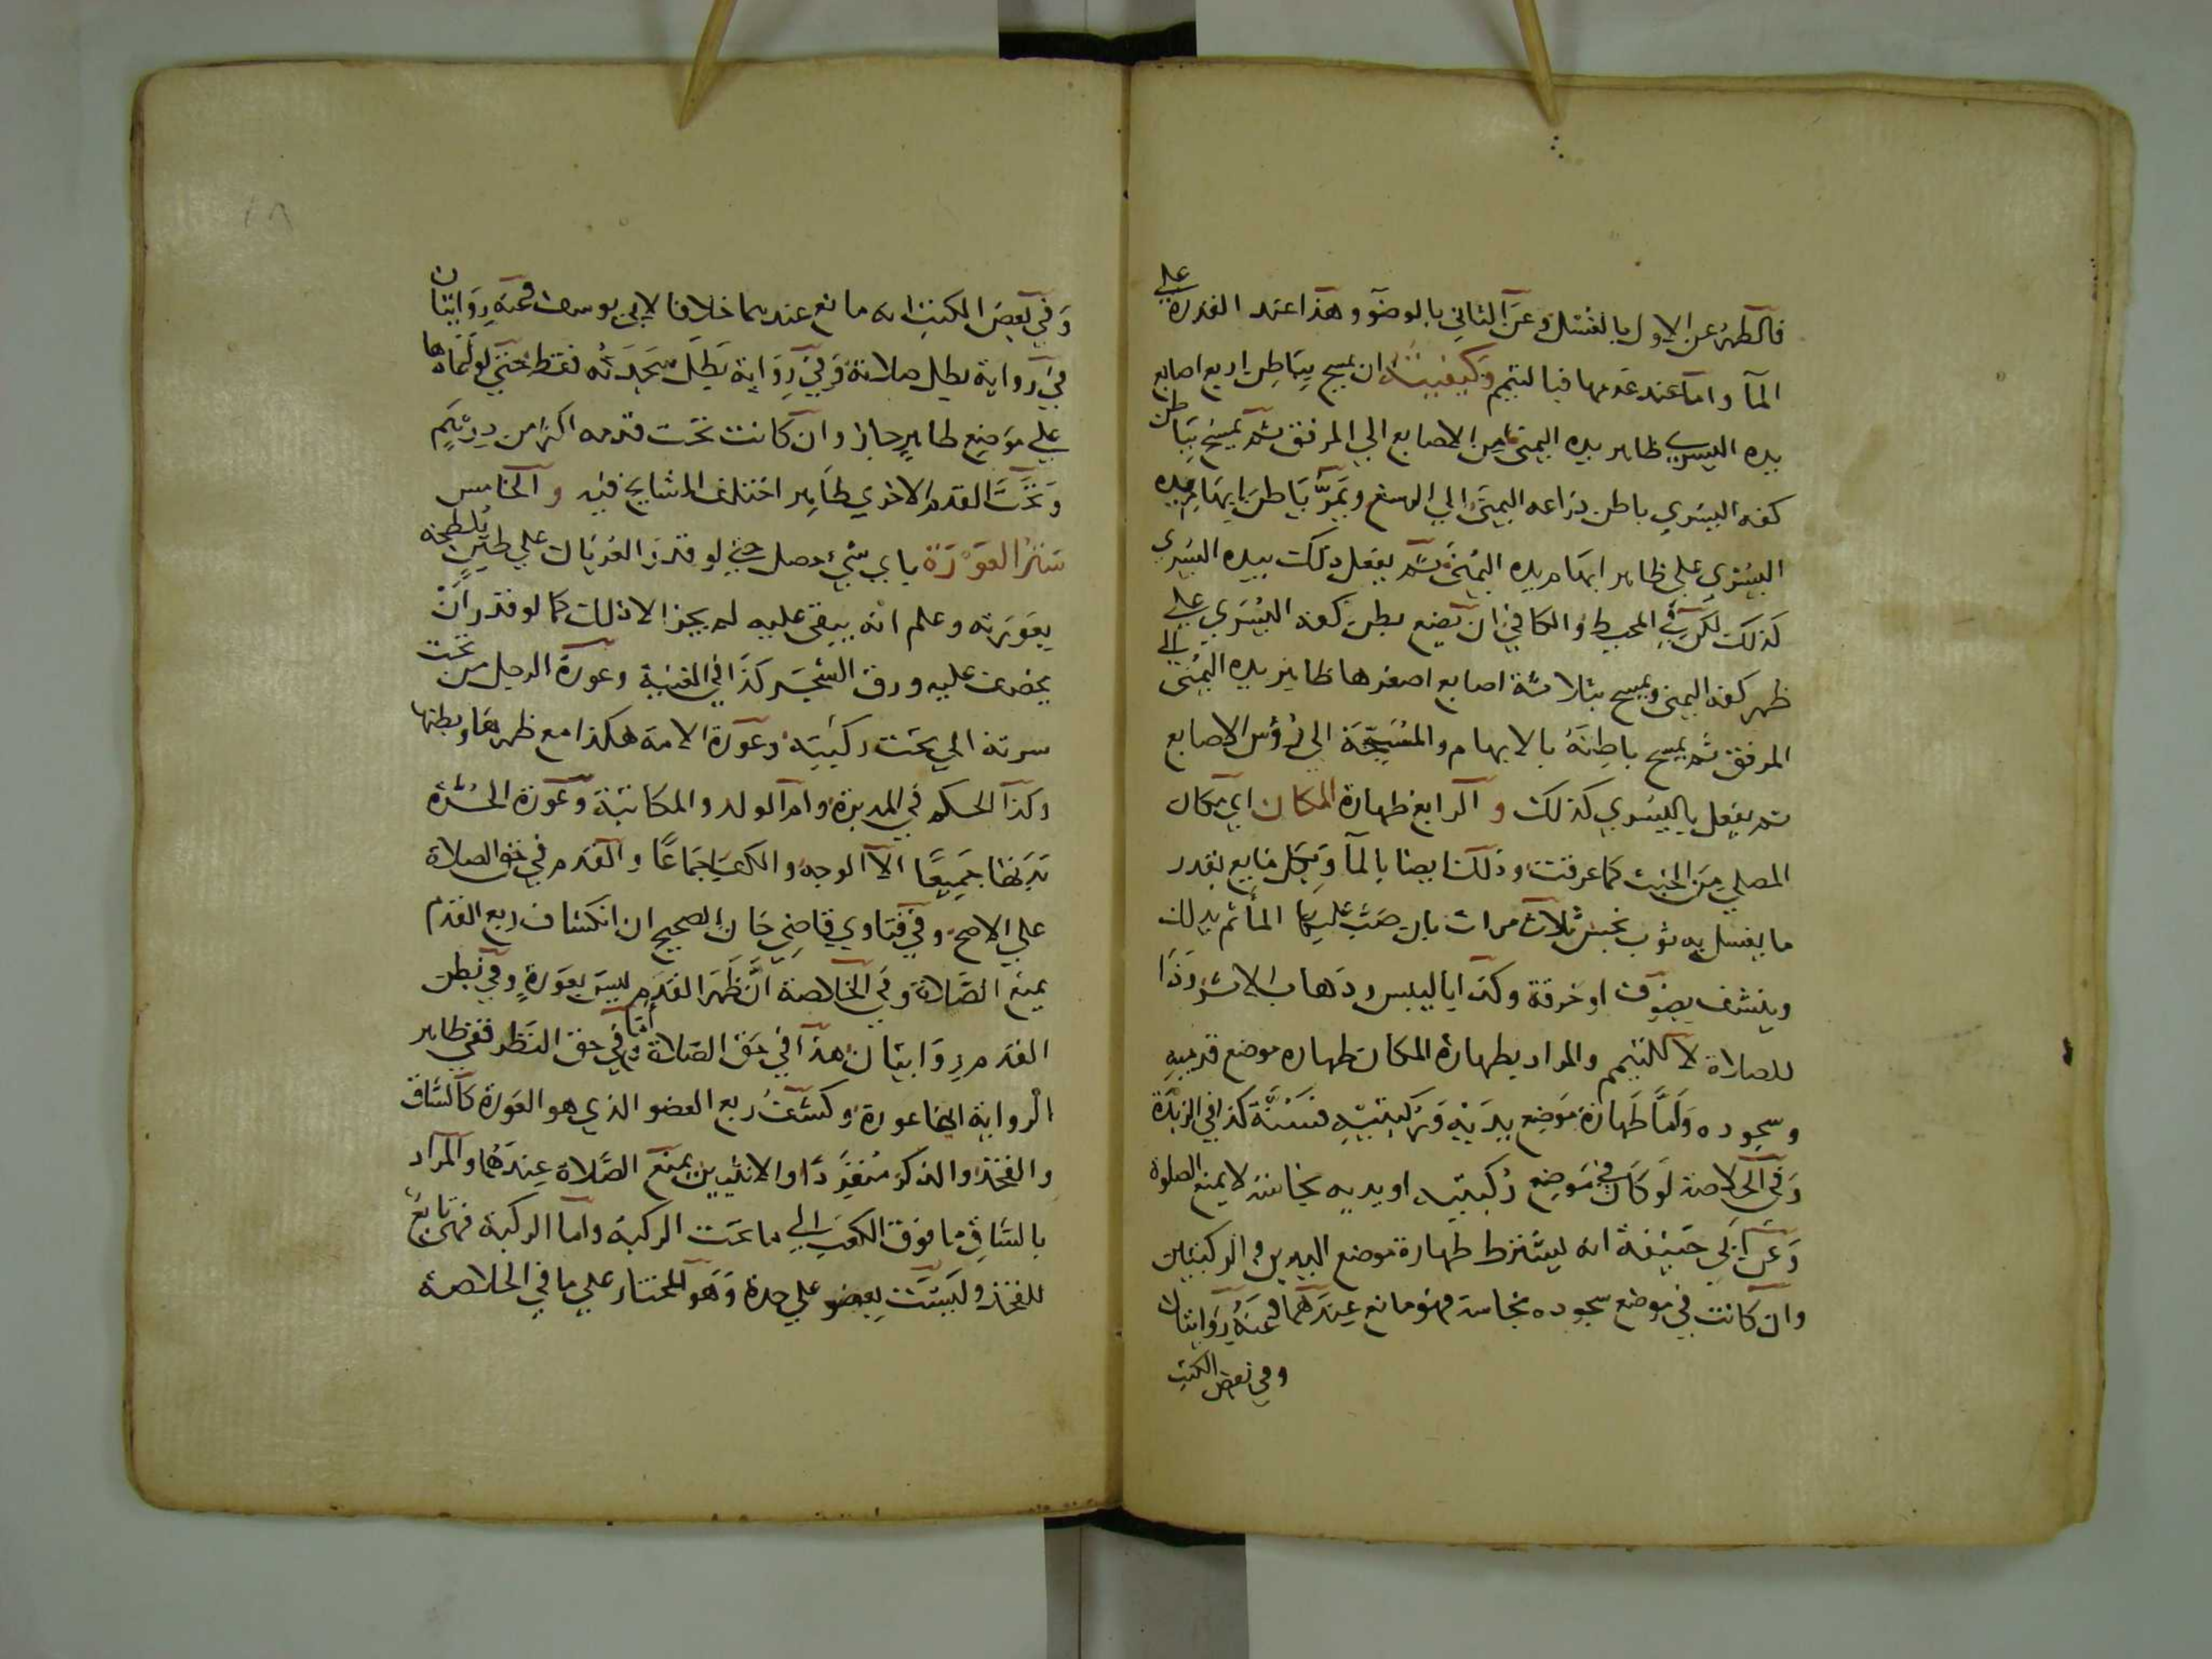 فالطهر عن الاول بالغسل وعن الثاني بالوضو وهذا عند القدرة على
المآ واما عند عدمها فبالتيمم وكيفيته ان يمسح بباطن اربع اصابع
يده اليسرى ظاهر يده اليمنى من الاصابع الي المرفق ثم يمسح بباطن
كفه اليسري باطن ذراعه اليمنى الي الرسغ ويمر باطن ابهام يده
اليسري علي ظاهر ابهام يده اليمنى ثم يفعل ذلك بيده اليسري
كذلك لكن في المحيط والكافي ان يضع بطن كفه اليسري علي
ظهر كفه اليمنى ويمسح بثلاثة اصابع اصغرها ظاهر يده اليمنى الي
المرفق ثم يمسح باطنه بالابهام والمسبحة الى رؤس الاصابع
ثم يفعل باليسري كذلك و الرابع طهارة المكان اي مكان
المصلي من الخبث كما عرفت وذلك ايضا بالمآ وبكل مايع بقدر
ما يغسل به ثوب نجس ثلاث مرات بان صب عليها المآ ثم يدلك
وينشف بصوف او خرقة وكذا باليبس وذهاب الاثر وذا
للصلاة لا للتيمم والمراد بطهارة المكان طهارة موضع قدميه
وسجوده واما طهارة موضع يديه وركبتيه فسنة كذا في الزبدة
وفي الخلاصة لو كان في موضع ركبتيه او يديه نجاسة لا يمنع الصلوة
وعن ابي حنيفة انه يشترط طهارة موضع اليدين والركبتين
وان كانت في موضع سجوده نجاسة فهو مانع عندهما وعنه روايتان
وفي بعض الكتب
وفي بعض الكتب انه مانع عندهما خلافا لابي يوسف وعنه روايتان
في رواية بطل صلاته وفي رواية بطل سجدته فقط حتى لو اعادها
علي موضع طاهر جاز وان كانت تحت قدمه اكثر من درهم
وتحت القدم الاخري طاهر اختلف المشايخ فيه و الخامس
ستر العورة باي شيء حصل حتي لو قدر العريان علي طين يلطخه
بعورته وعلم انه يبقى عليه لم يجز الا ذلك كما لو قدر ان
يخصف عليه ورق الشجر كذا في القنية وعورة الرجل من تحت
سرته الي تحت ركبتيه وعورة الامة هكذا مع ظهرها وبطنها
وكذا الحكم في المدبرة وام الولد والمكاتبة وعورة الحرة
بدنها جميعا الا الوجه والكف اجماعا والقدم في حق الصلاة
علي الاصح وفي فتاوي قاضي خان الصحيح ان انكشاف ربع القدم
يمنع الصلاة وفي الخلاصة ان ظهر القدم ليس بعورة وفي بطن
القدم روايتان هذا في حق الصلاة اما في حق النظر ففي ظاهر
الرواية انها عورة وكشف ربع العضو الذي هو العورة كالساق
والفخذ والذكر منفردا والانثيين يمنع الصلاة عندهما والمراد
بالساق ما فوق الكعب الي ما تحت الركبة واما الركبة فهي تابع
للفخذ وليست بعضو علي حدة وهو المختار علي ما في الخلاصة